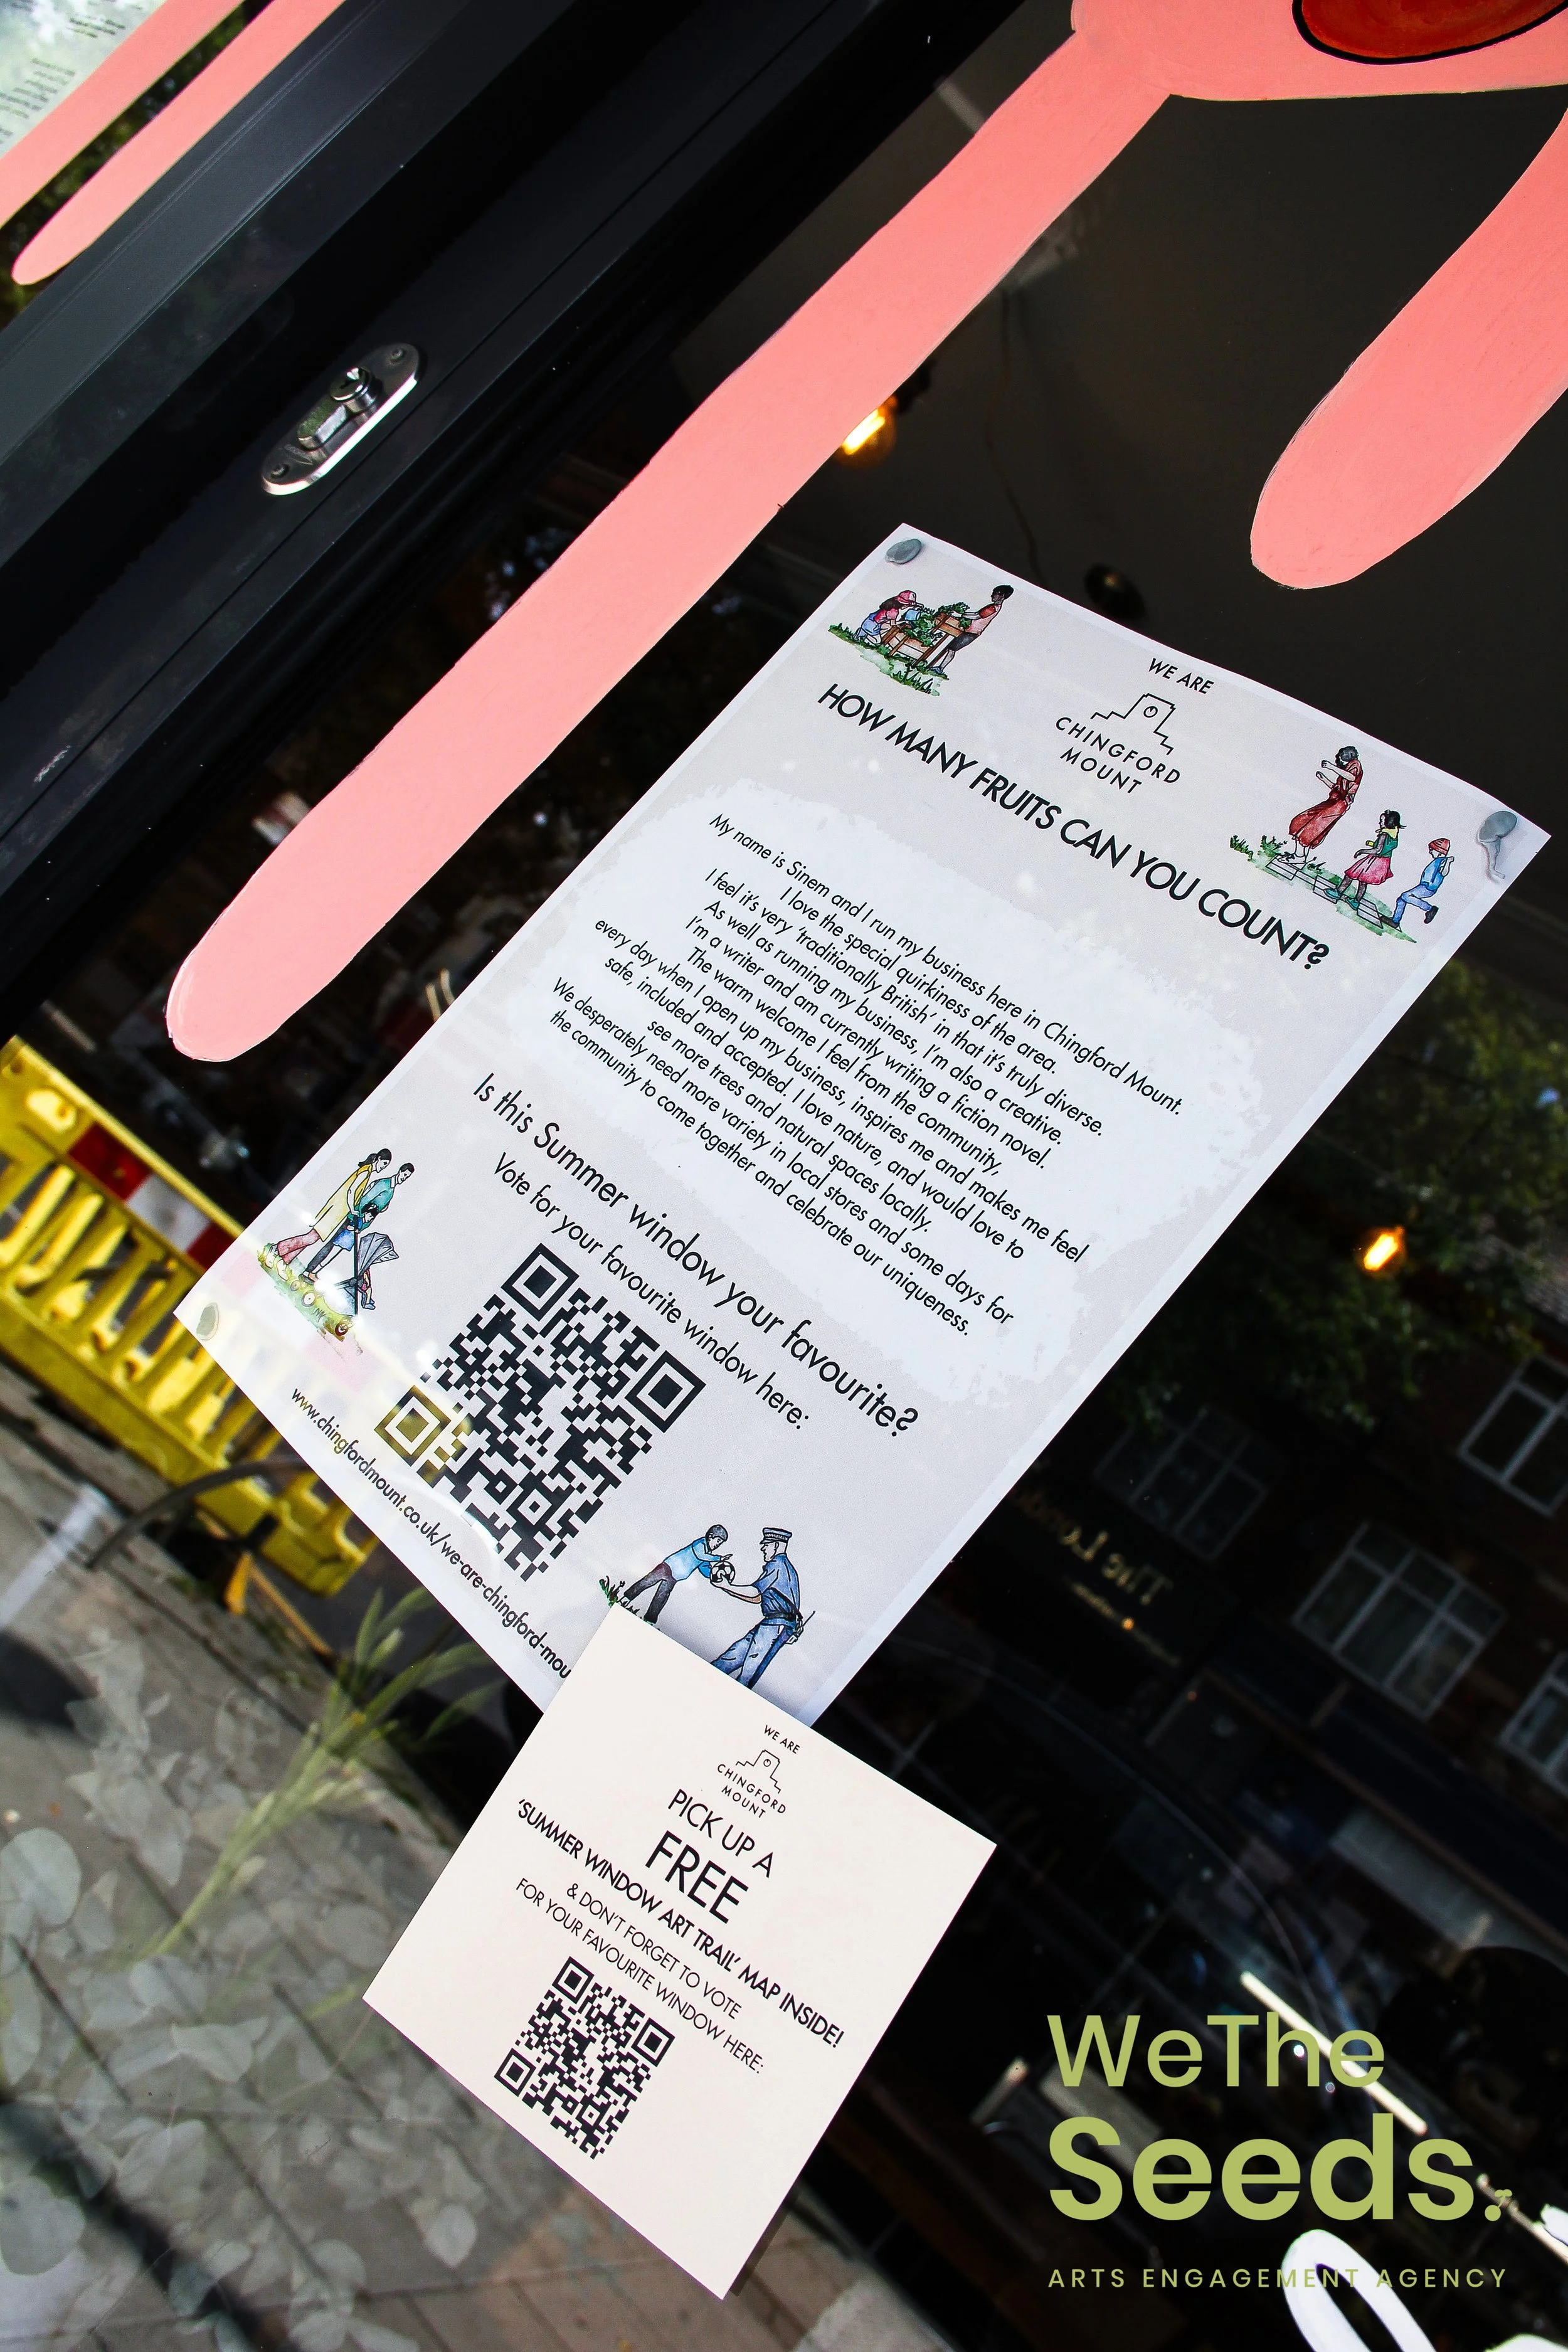 WE ARE
CHINGFORD
MOUNT
HOW MANY FRUITS CAN YOU COUNT?
My name is Sinem and I run my business here in Chingford Mount.
I love the special quirkiness of the area.
I feel it's very 'traditionally British' in that it's truly diverse.
As well as running my business, I'm also a creative.
I'm a writer and am currently writing a fiction novel.
The warm welcome I feel from the community,
every day when I open up my business, inspires me and makes me feel
safe, included and accepted. I love nature, and would love to
see more trees and natural spaces locally.
We desperately need more variety in local stores and some days for
the community to come together and celebrate our uniqueness.
Is this Summer window your favourite?
Vote for your favourite window here:
www.chingfordmount.co.uk/we-are-chingford-mou
WE ARE
CHINGFORD
MOUNT
PICK UP A
FREE
'SUMMER WINDOW ART TRAIL' MAP INSIDE!
& DON'T FORGET TO VOTE
FOR YOUR FAVOURITE WINDOW HERE:
WeThe
Seeds.
ARTS ENGAGEMENT AGENCY